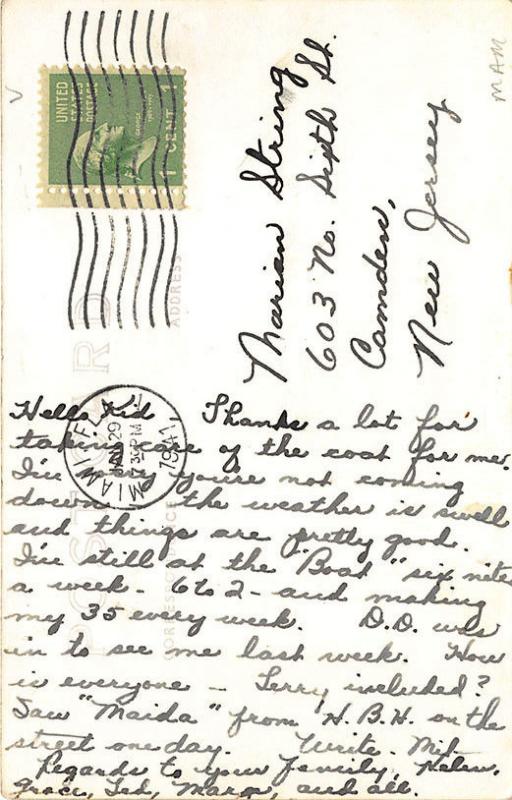 UNITED
STATES
POSTAGE
1 CENT 1
Marian String
603 No. Sixth St.
Camden,
New Jersey
MAM
POST CARD
ADDRESS
CORRESPONDENCE
MIAMI, FLA.
JAN 29
7 30 PM
1941
Hello Kid Thanks a lot for
taking care of the coat for me.
I'm sorry you're not coming
down - the weather is swell
and things are pretty good.
I'm still at the "Boat" six nites
a week - 6 to 2 - and making
my 35 every week. D.D. was
in to see me last week. How
is everyone - Terry included?
Saw "Maida" from H.B.H. on the
street one day. Write - Mit
Regards to your family, Helen,
Grace, Ted, Marge, and all.